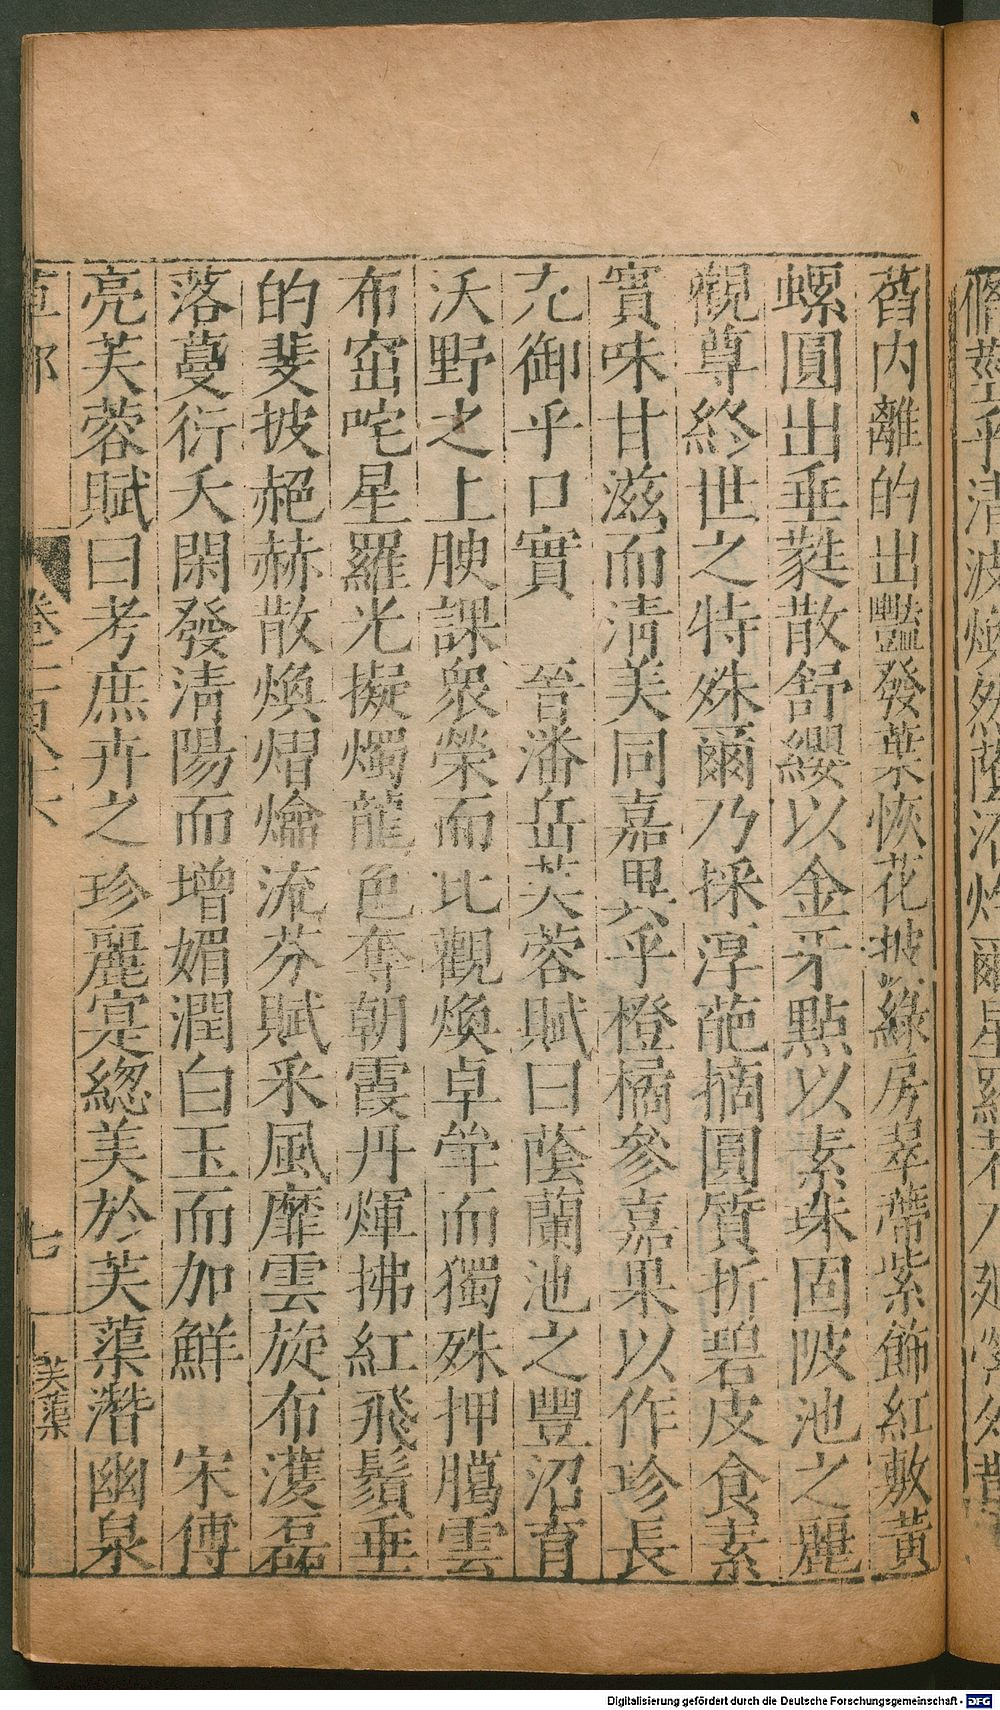 菡內離的出豔發葉恢花披綠房翠蔕紫飾紅敷黃
螺圓出垂蕤散舒纓以金牙點以素珠固陂池之麗
觀尊終世之特殊爾乃採淳葩摘圓質折碧皮食素
實味甘滋而清美同嘉異乎橙橘參嘉果以作珍長
充御乎口實　晉潘岳芙蓉賦曰蔭蘭池之豐沼育
沃野之上腴課衆榮而比觀煥卓犖而獨殊押臈雲
布窋咤星羅光擬燭龍色奪朝霞丹煇拂紅飛鬚垂
的斐披赩赫散煥熠爚流芬賦采風靡雲旋布濩磊
落蔓衍夭閑發清陽而增媚潤白玉而加鮮　宋傅
亮芙蓉賦曰考庶卉之珍麗寔總美於芙蕖潛幽泉
草部　卷一百八十六　七　芙蕖
Digitalisierung gefördert durch die Deutsche Forschungsgemeinschaft - DFG